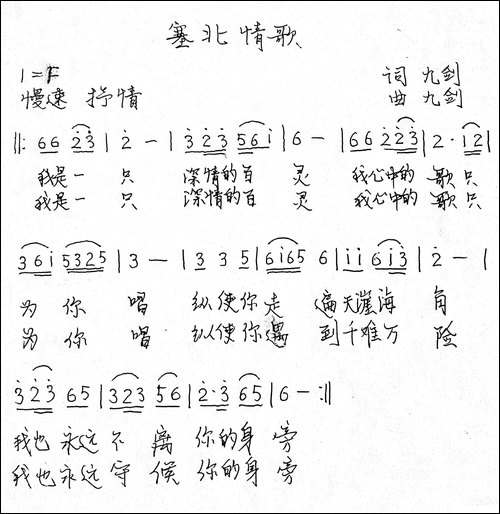 塞北情歌
1=F
词 九剑
慢速 抒情
曲 九剑
‖: 6 6 2̇ 3̇ | 2̇ — | 3̇ 2̇ 3̇ 5 6 i | 6 — | 6 6 2̇ 2̇ 3̇ | 2̇ · i 2̇ |
我是一 只 深情的百 灵 我心中的 歌只
我是一 只 深情的百 灵 我心中的 歌只
3̇ 6 i 5 3 2 5 | 3 — | 3 3 5 | 6 i 6 5 6 | i i 6 i 3̇ | 2̇ — |
为 你 唱 纵使你走 遍天涯海 角
为 你 唱 纵使你遇 到千难万 险
3̇ 2̇ 3̇ 6 5 | 3 2 3 5 6 | 2̇ · 3̇ 6 5 | 6 — :‖
我也永远不 离 你的身 旁
我也永远守 候 你的身 旁